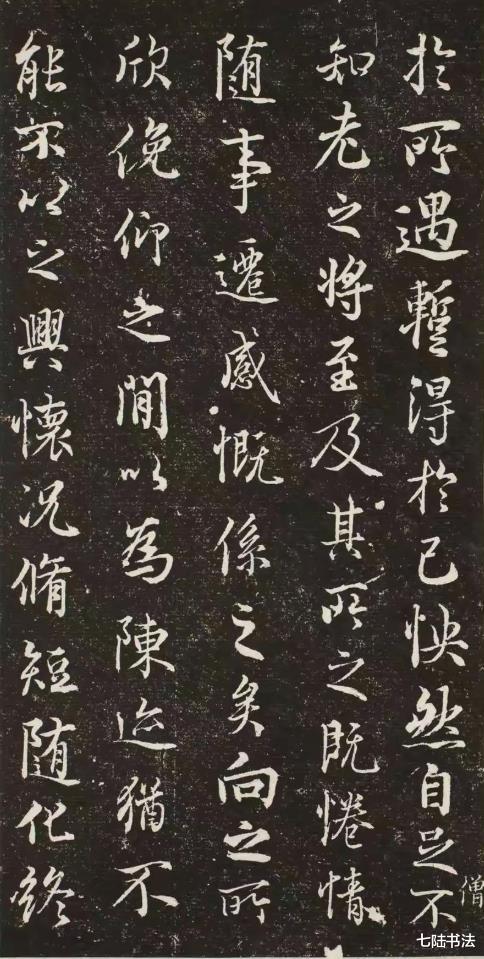 於所遇暫得於己怏然自足不
僧
知老之將至及其所之既惓情
随事遷感慨係之矣向之所
欣俛仰之間以為陳迹猶不
能不以之興懷況脩短随化終
七陆书法